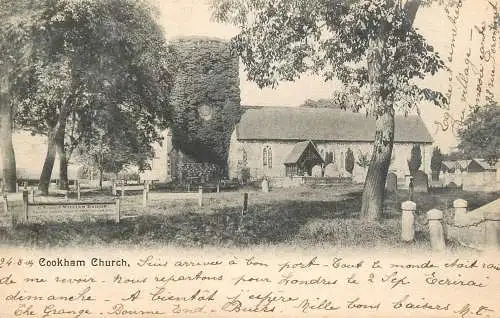 24.8.04 Cookham Church. Suis arrivée à bon port - Tout le monde était ravi
de me revoir. Nous repartons pour Londres le 2 Sep Ecrirai
dimanche - A bientôt j'espère - Mille bons baisers M.T.
The Grange - Bourne End - Bucks.
village